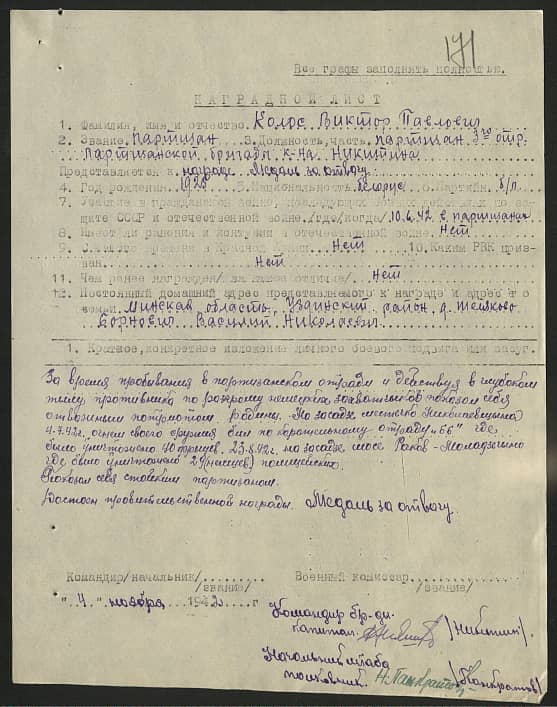 171
Все графы заполнять полностью.
НАГРАДНОЙ ЛИСТ
1. Фамилия, имя и отчество Колос Виктор Павлович
2. Звание Партизан 3. Должность, часть партизан 3го отр.
Партизанской бригады к-на Никитина
Представляется к награде Медаль за отвагу
4. Год рождения 1926 5. Национальность белорус 6. Партийн. б/п
7. Участие в гражданской войне, последующих боевых действиях по за-
щите СССР и отечественной войне /где/когда/ 10.6.42 в партизанах
8. Имеет ли ранения и контузии в отечественной войне Нет
9. С какого времени в Красной Армии Нет 10. Каким РВК приз-
ван Нет
11. Чем ранее награжден/за какие отличия/ Нет
12. Постоянный домашний адрес представляемого к награде и адрес его
семьи Минская область, Узденский район, д.
Василий Николаевич
1. Краткое, конкретное изложение личного боевого подвига или заслуг.
За время пробывания в партизанском отряде и действуя в глубоком
тылу противника по разгрому немецких захватчиков показал себя
отважным патриотом родины. На засаде местечко
4.7.42г. огнем своего оружия бил по карательному отряду "66" где
было уничтожено 40 фрицев. 23.8.42г. на засаде шоссе Раков-Молодечно
где было уничтожено 29 (немцев) полицейских.
Показал себя стойким партизаном.
Достоен правительственной награды. Медаль за отвагу.
Командир/начальник/ Военный комиссар
/звание/ /звание/
"4" ноября 1942 г
Командир бр-ды
капитан /Никитин/
Начальник штаба
полковник. Н. Панкратов /Панкратов/